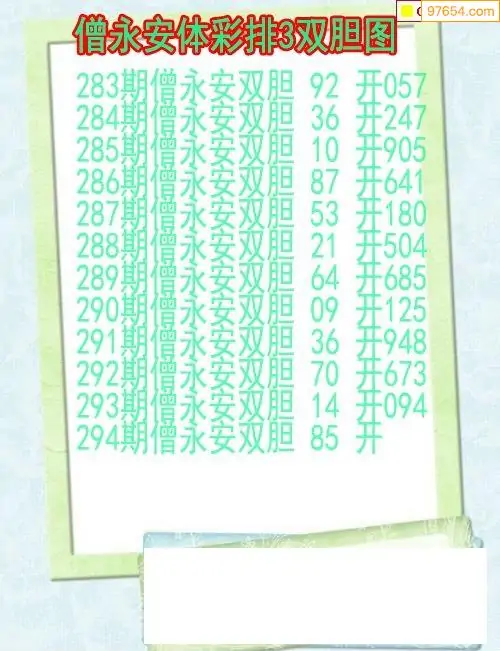 97654.com
僧永安体彩排3双胆图
283期僧永安双胆 92 开057
284期僧永安双胆 36 开247
285期僧永安双胆 10 开905
286期僧永安双胆 87 开641
287期僧永安双胆 53 开180
288期僧永安双胆 21 开504
289期僧永安双胆 64 开685
290期僧永安双胆 09 开125
291期僧永安双胆 36 开948
292期僧永安双胆 70 开673
293期僧永安双胆 14 开094
294期僧永安双胆 85 开